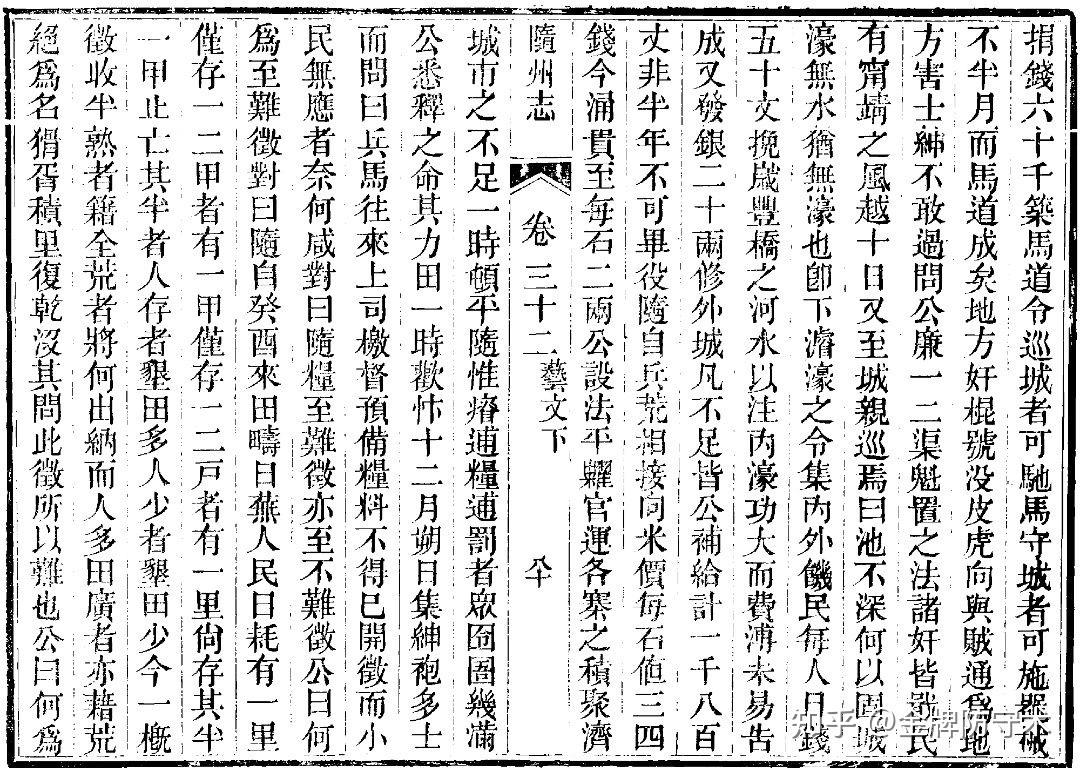 捐錢六十千築馬道令巡城者可馳馬守城者可施器械
不半月而馬道成矣地方奸棍號没皮虎向與賊通爲地
方害士紳不敢過問公廉一二渠魁置之法諸奸皆戢民
有甯靖之風越十日又至城親巡焉曰池不深何以固城
濠無水猶無濠也卽下濬濠之令集内外饑民每人日錢
五十文挽崴豐橋之河水以注内濠功大而費溥未易告
成又發銀二十兩修外城凡不足皆公補給計一千八百
丈非半年不可畢役隨自兵荒相接向米價每石値三四
錢今涌貴至每石二兩公設法平糶官運各寨之積聚濟
隨州志
卷三十二
藝文下
卆
城市之不足一時頓平隨惟瘠逋糧逋罰者眾囹圄幾滿
公悉釋之命其力田一時歡忭十二月朔日集紳袍多士
而問曰兵馬往來上司檄督預備糧料不得已開徵而小
民無應者奈何咸對曰隨糧至難徵亦至不難徵公曰何
爲至難徵對曰隨自癸酉來田疇日蕪人民日耗有一里
僅存一二甲者有一甲僅存一二戸者有一里尙存其半
一甲止亡其半者人存者墾田多人少者墾田少今一概
徵收半熟者籍全荒者將何出納而人多田廣者亦藉荒
絕爲名猾胥積里復乾没其問此徵所以難也公曰何爲
知乎 @金牌防守木